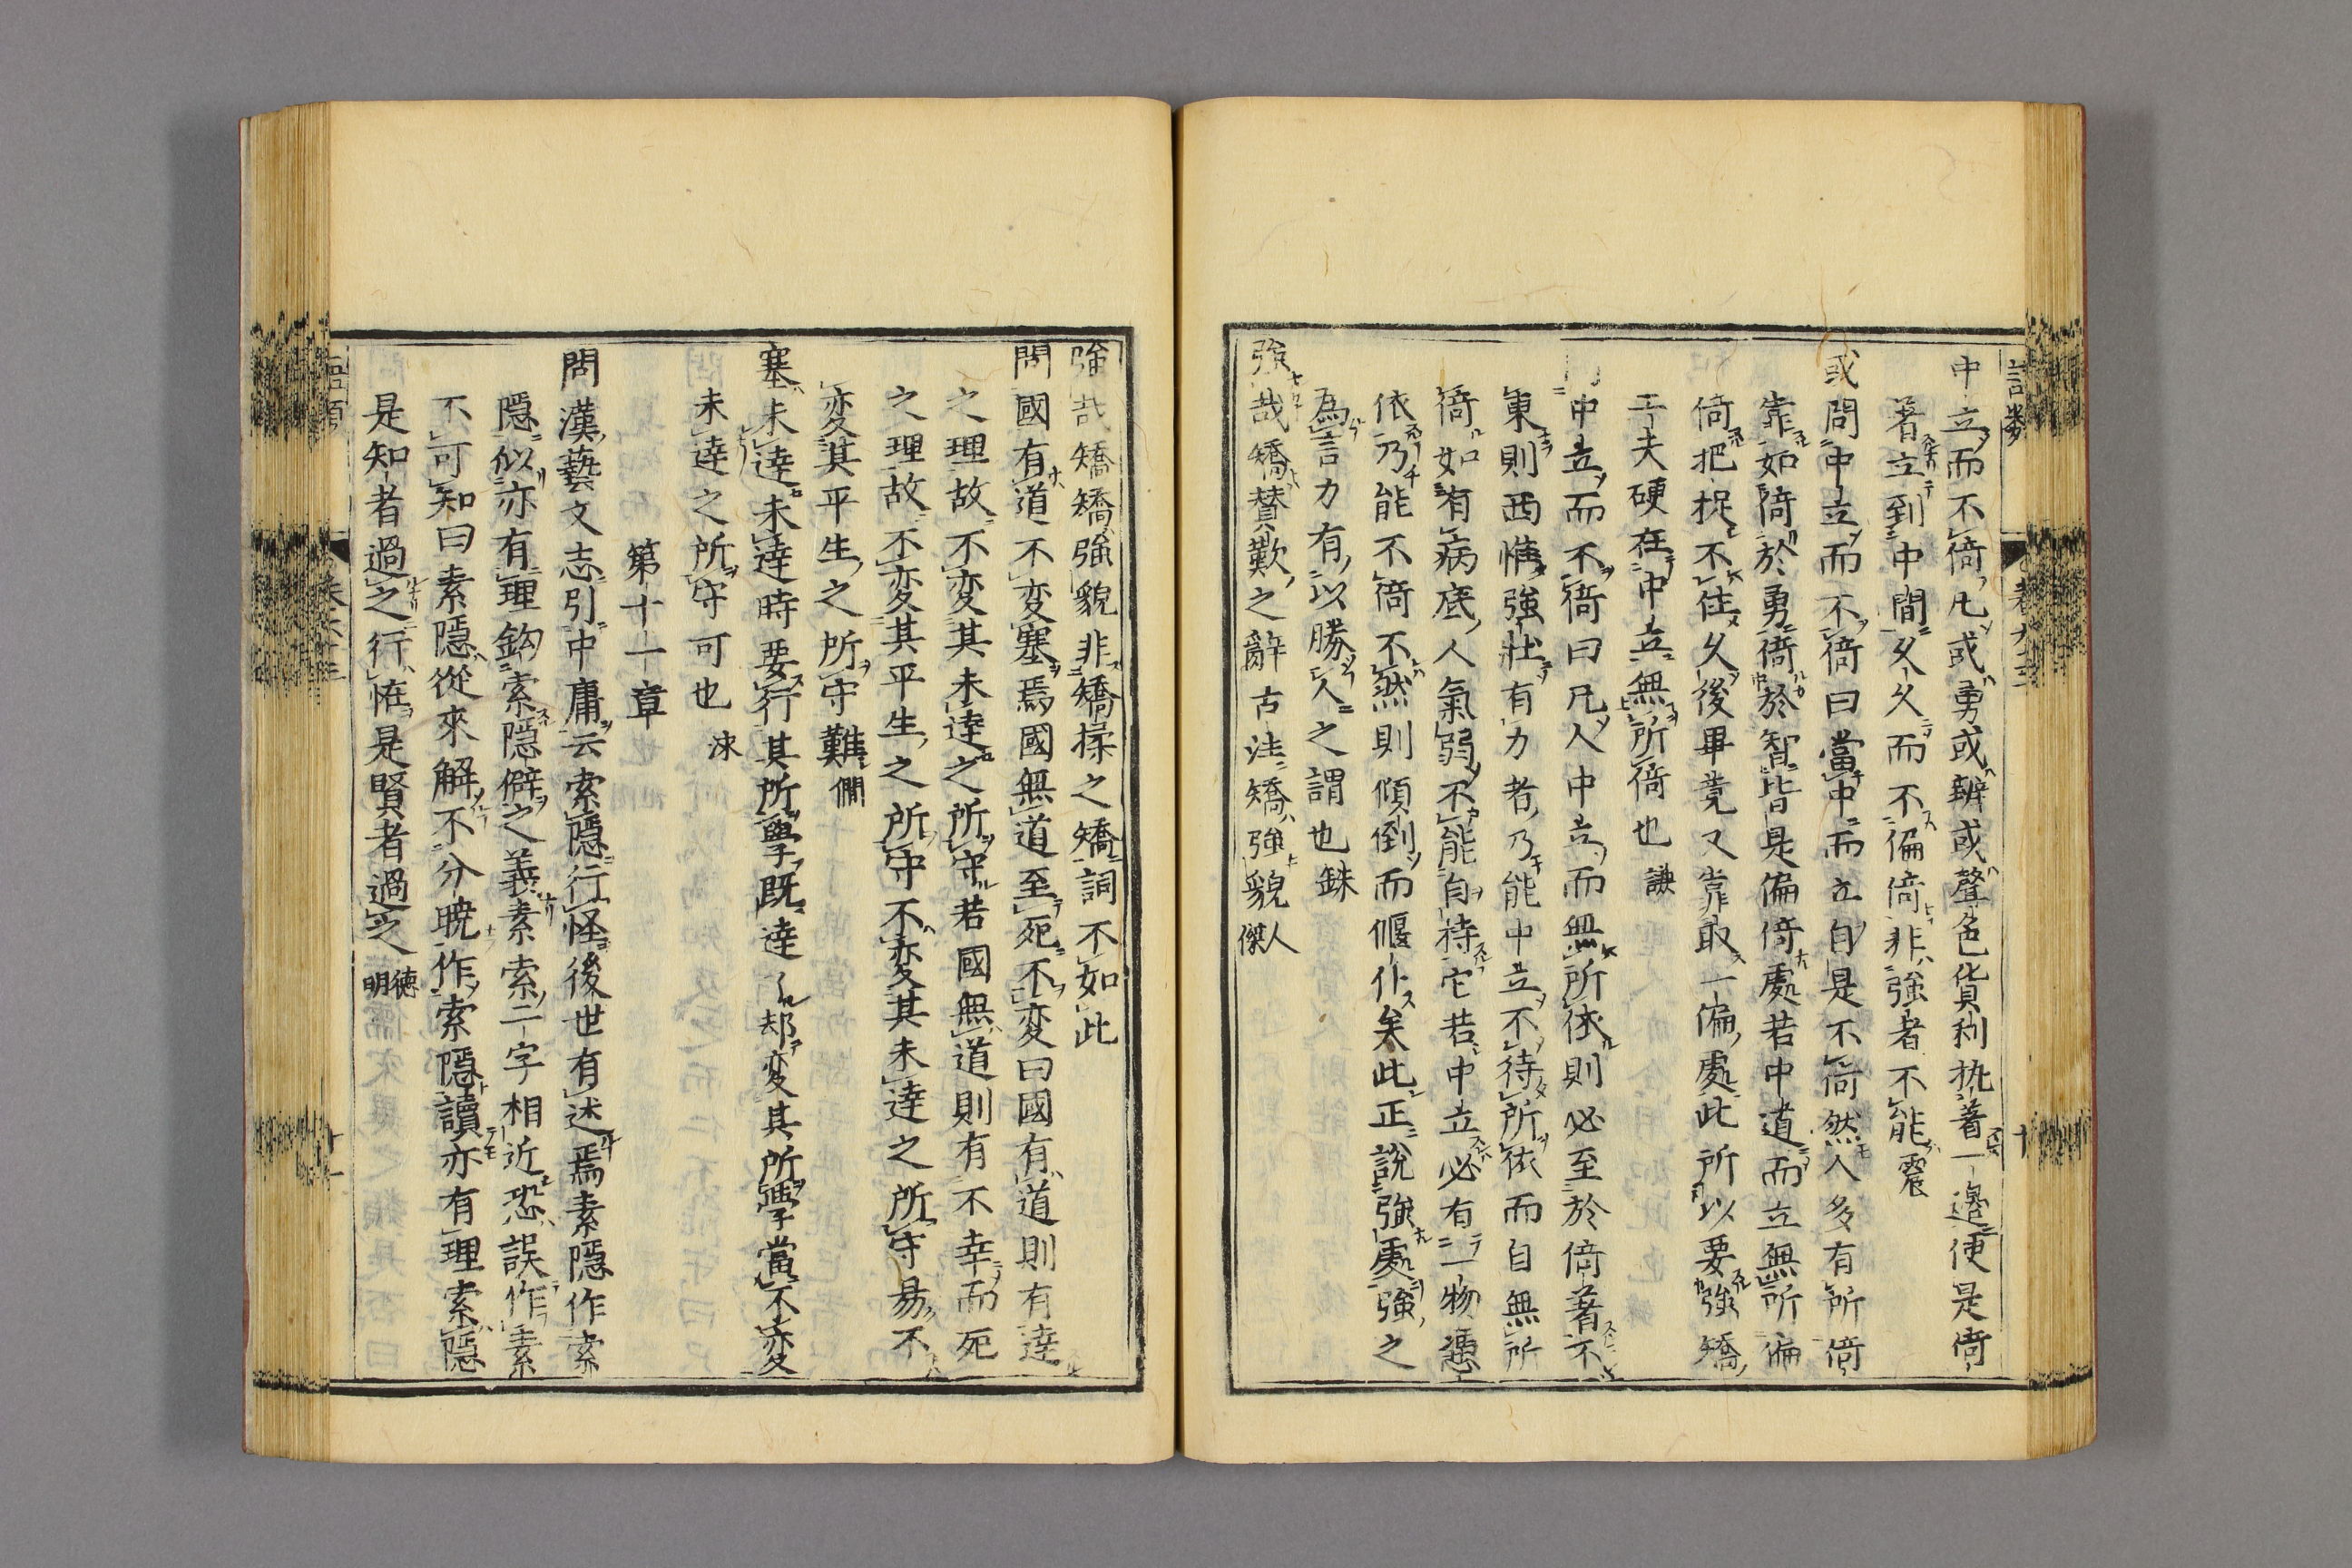 中立而不倚凡或勇或辨或聲色貨利執著一邊便是倚
著立到中間久久而不偏倚非強者不能震
或問中立而不倚曰當中而立自是不倚然人多有所倚
靠如倚於勇倚於智皆是偏倚處若中道而立無所偏
倚把捉不住久後畢竟又靠取一偏處此所以要強矯
工夫硬在中立無所倚也謙
問中立而不倚曰凡人中立而無所依則必至於倚著不
東則西惟強壯有力者乃能中立不待所依而自無所
倚如有病底人氣弱不能自持它若中立必有一物憑
依乃能不倚不然則傾倒而偃仆矣此正說強處強之
為言力有以勝人之謂也銖
強哉矯贊歎之辭古註矯強貌人傑
強哉矯矯強貌非矯揉之矯詞不如此
問國有道不変塞焉國無道至死不変曰國有道則有達
之理故不変其未達之所守若國無道則有不幸而死
之理故不変其平生之所守不変其未達之所守易不
変其平生之所守難僩
塞未達未達時要行其所學既達了却変其所學當不変
未達之所守可也 洙
第十一章
問漢藝文志引中庸云索隱行怪後世有述焉素隱作索
隱似亦有理鈎索隱僻之義素索二字相近恐誤作素
不可知曰素隱從來解不分曉作索隱讀亦有理索隱
是知者過之行怪是賢者過之 德明